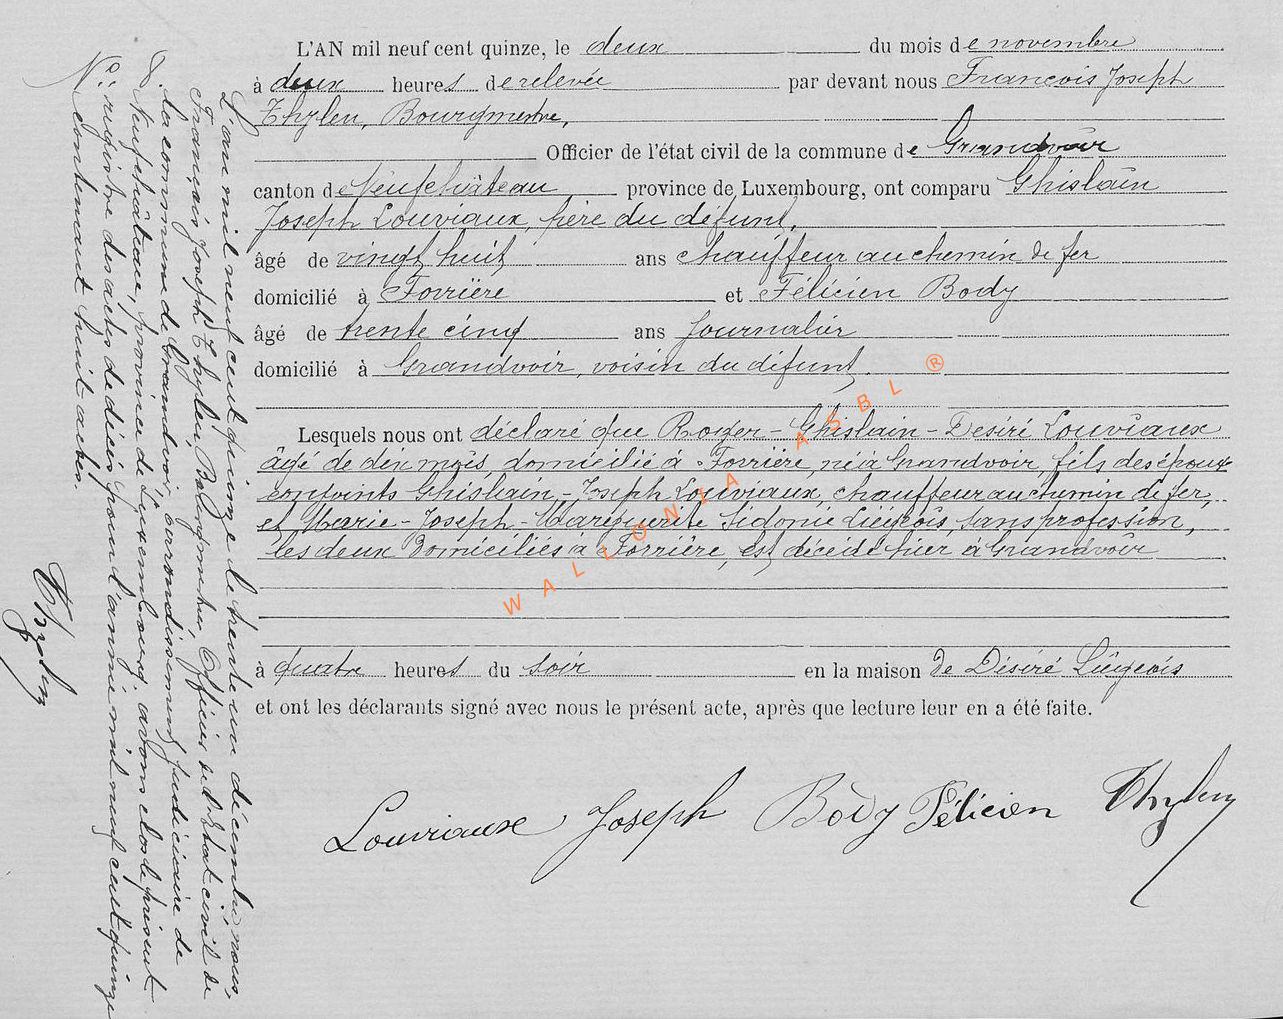 L'AN mil neuf cent quinze, le deux du mois de novembre
à deux heures de relevée par devant nous François Joseph
Thylen, Bourgmestre,
Officier de l'état civil de la commune de Grandvoir
canton de Neufchâteau province de Luxembourg, ont comparu Ghislain
Joseph Louviaux, père du défunt,
âgé de vingt huit ans chauffeur au chemin de fer
domicilié à Forrière et Félicien Body
âgé de trente cinq ans journalier
domicilié à Grandvoir, voisin du défunt.
Lesquels nous ont déclaré que Roger-Ghislain-Desiré Louviaux
âgé de dix mois, domicilié à Forrière, né à Grandvoir, fils des époux
conjoints Ghislain-Joseph Louviaux, chauffeur au chemin de fer,
et Marie-Joseph-Marguerite Sidonie Liégeois, sans profession,
les deux domiciliés à Forrière, est décédé hier, à Grandvoir
à quatre heures du soir en la maison de Désiré Liégeois
et ont les déclarants signé avec nous le présent acte, après que lecture leur en a été faite.
Louviaux Joseph Body Félicien Thylen
L'an mil neuf cent quinze le trente un décembre, nous,
François Joseph Thylen, Bourgmestre, Officier de l'état civil de
la commune de Grandvoir, arrondissement judiciaire de
Neufchâteau, province de Luxembourg, avons clos le présent
registre des actes de décès pour l'année mil neuf cent quinze
contenant huit actes.
Thylen
N° 8.
WALLONIA ASBL ®